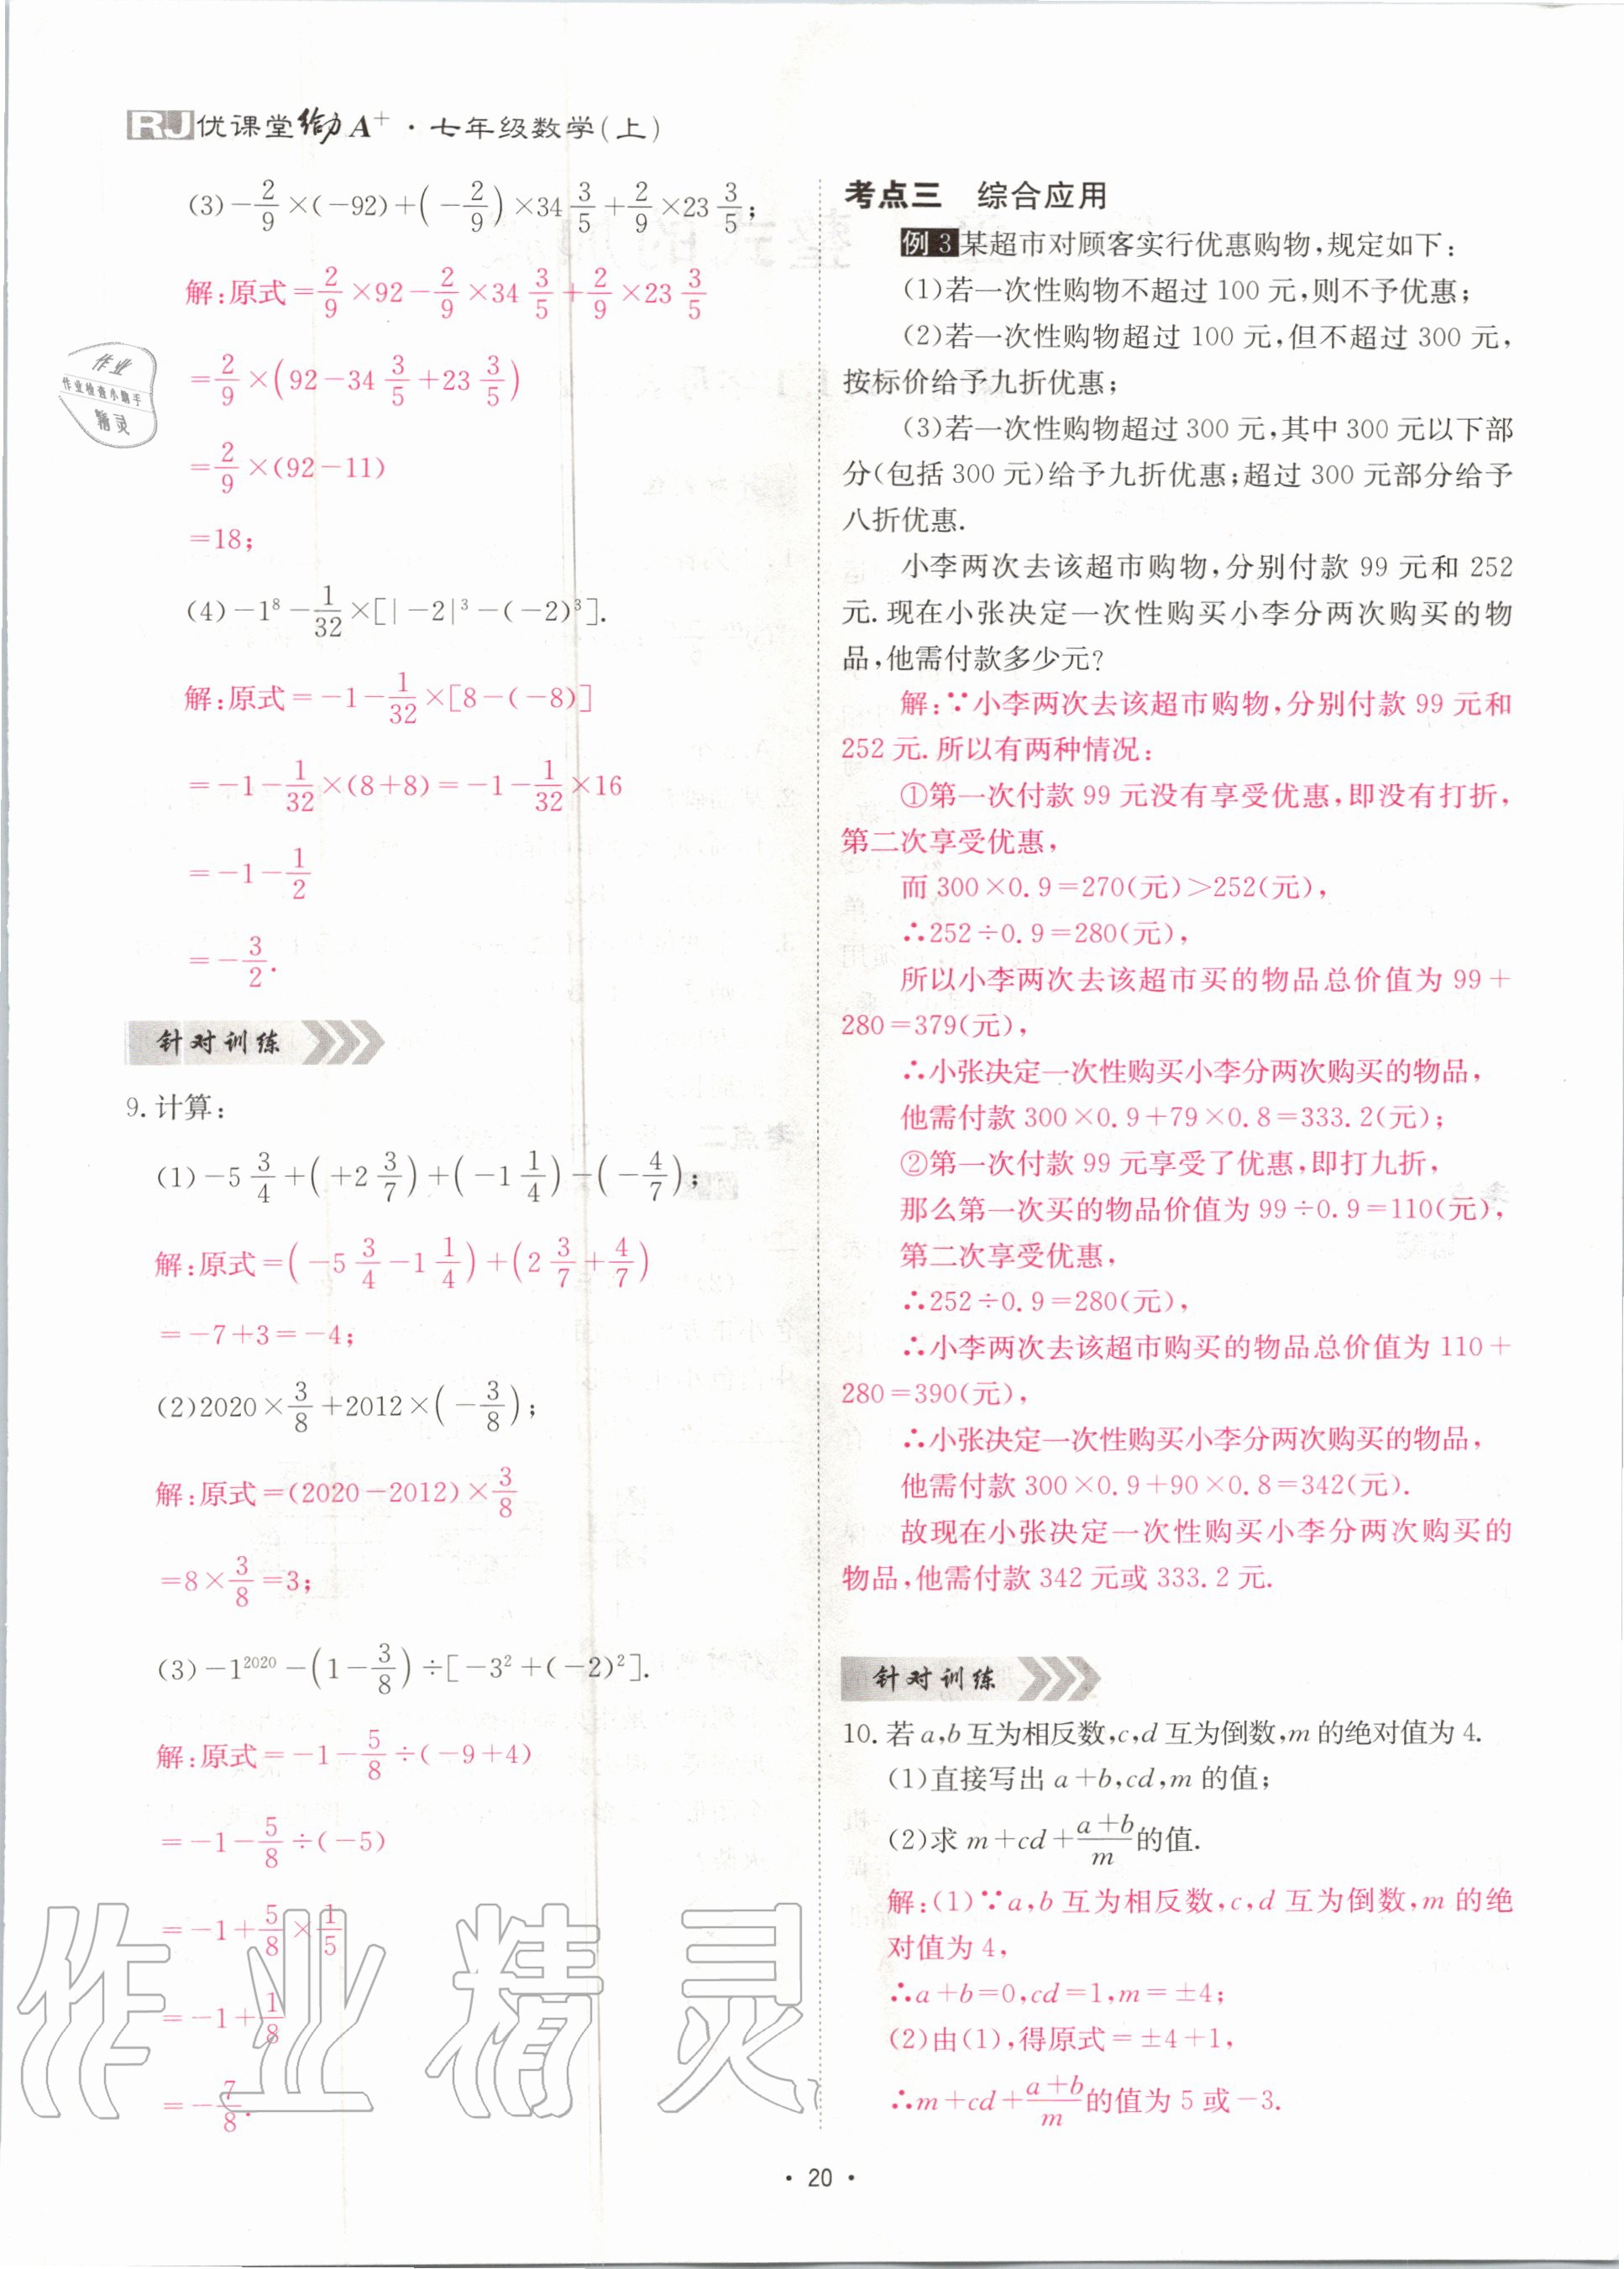 RJ优课堂给力A⁺·七年级数学(上)
(3)-2/9×(-92)+(-2/9)×34 3/5+2/9×23 3/5;
解:原式=2/9×92-2/9×34 3/5+2/9×23 3/5
=2/9×(92-34 3/5+23 3/5)
=2/9×(92-11)
=18;
(4)-1⁸-1/32×[|-2|³-(-2)³].
解:原式=-1-1/32×[8-(-8)]
=-1-1/32×(8+8)=-1-1/32×16
=-1-1/2
=-3/2.
针对训练
9.计算:
(1)-5 3/4+(+2 3/7)+(-1 1/4)-(-4/7);
解:原式=(-5 3/4-1 1/4)+(2 3/7+4/7)
=-7+3=-4;
(2)2020×3/8+2012×(-3/8);
解:原式=(2020-2012)×3/8
=8×3/8=3;
(3)-1²⁰²⁰-(1-3/8)÷[-3²+(-2)²].
解:原式=-1-5/8÷(-9+4)
=-1-5/8÷(-5)
=-1+5/8×1/5
=-1+1/8
=-7/8.
考点三 综合应用
例3 某超市对顾客实行优惠购物,规定如下:
(1)若一次性购物不超过100元,则不予优惠;
(2)若一次性购物超过100元,但不超过300元,
按标价给予九折优惠;
(3)若一次性购物超过300元,其中300元以下部
分(包括300元)给予九折优惠;超过300元部分给予
八折优惠.
小李两次去该超市购物,分别付款99元和252
元.现在小张决定一次性购买小李分两次购买的物
品,他需付款多少元?
解:∵小李两次去该超市购物,分别付款99元和
252元.所以有两种情况:
①第一次付款99元没有享受优惠,即没有打折,
第二次享受优惠,
而300×0.9=270(元)>252(元),
∴252÷0.9=280(元),
所以小李两次去该超市买的物品总价值为99+
280=379(元),
∴小张决定一次性购买小李分两次购买的物品,
他需付款300×0.9+79×0.8=333.2(元);
②第一次付款99元享受了优惠,即打九折,
那么第一次买的物品价值为99÷0.9=110(元),
第二次享受优惠,
∴252÷0.9=280(元),
∴小李两次去该超市购买的物品总价值为110+
280=390(元),
∴小张决定一次性购买小李分两次购买的物品,
他需付款300×0.9+90×0.8=342(元).
故现在小张决定一次性购买小李分两次购买的
物品,他需付款342元或333.2元.
针对训练
10.若a,b互为相反数,c,d互为倒数,m的绝对值为4.
(1)直接写出a+b,cd,m的值;
(2)求m+cd+(a+b)/m的值.
解:(1)∵a,b互为相反数,c,d互为倒数,m的绝
对值为4,
∴a+b=0,cd=1,m=±4;
(2)由(1),得原式=±4+1,
∴m+cd+(a+b)/m的值为5或-3.
·20·
作业
作业检查小助手
精灵
作业精灵